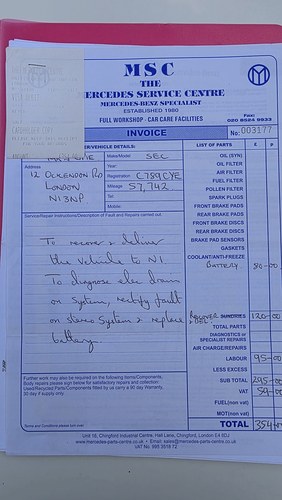 MSC
THE
MERCEDES SERVICE CENTRE
MERCEDES-BENZ SPECIALIST
ESTABLISHED 1980
FULL WORKSHOP · CAR CARE FACILITIES
020 8524 9933
INVOICE
No: 003177
VEHICLE DETAILS:
Address
12 OCKENDON RD
LONDON
N1 3NP
Make/Model SEC
Year:
Registration C789CYE
Mileage 57,742
Tel
Mobile:
LIST OF PARTS £ p
OIL (SYN)
OIL FILTER
AIR FILTER
FUEL FILTER
POLLEN FILTER
SPARK PLUGS
FRONT BRAKE PADS
REAR BRAKE PADS
FRONT BRAKE DISCS
REAR BRAKE DISCS
BRAKE PAD SENSORS
GASKETS
COOLANT/ANTI-FREEZE
BATTERY 80-00
Service/Repair Instructions/Description of Fault and Repairs carried out:
To recover & deliver
the vehicle to N1.
To diagnose elec drawn
on system, rectify fault
on stereo system & replace
battery.
RECOVER SUNDRIES 120-00
& DEL
TOTAL PARTS
DIAGNOSTICS or
SPECIALIST REPAIRS
AIR CHARGE/REPAIRS
LABOUR 95-00
LESS EXCESS
SUB TOTAL 295-00
VAT 59-00
FUEL(non vat)
MOT(non vat)
TOTAL 354-
Further work may also be required on the following items/Components.
Body repairs please sign below for satisfactory repairs and collection
Used/Recycled Parts/Components fitted by us carry a 90 day Warranty.
30 day if supply only.
Terms and Conditions please turn over
Unit 15, Chingford Industrial Centre, Hall Lane, Chingford, London E4 8DJ